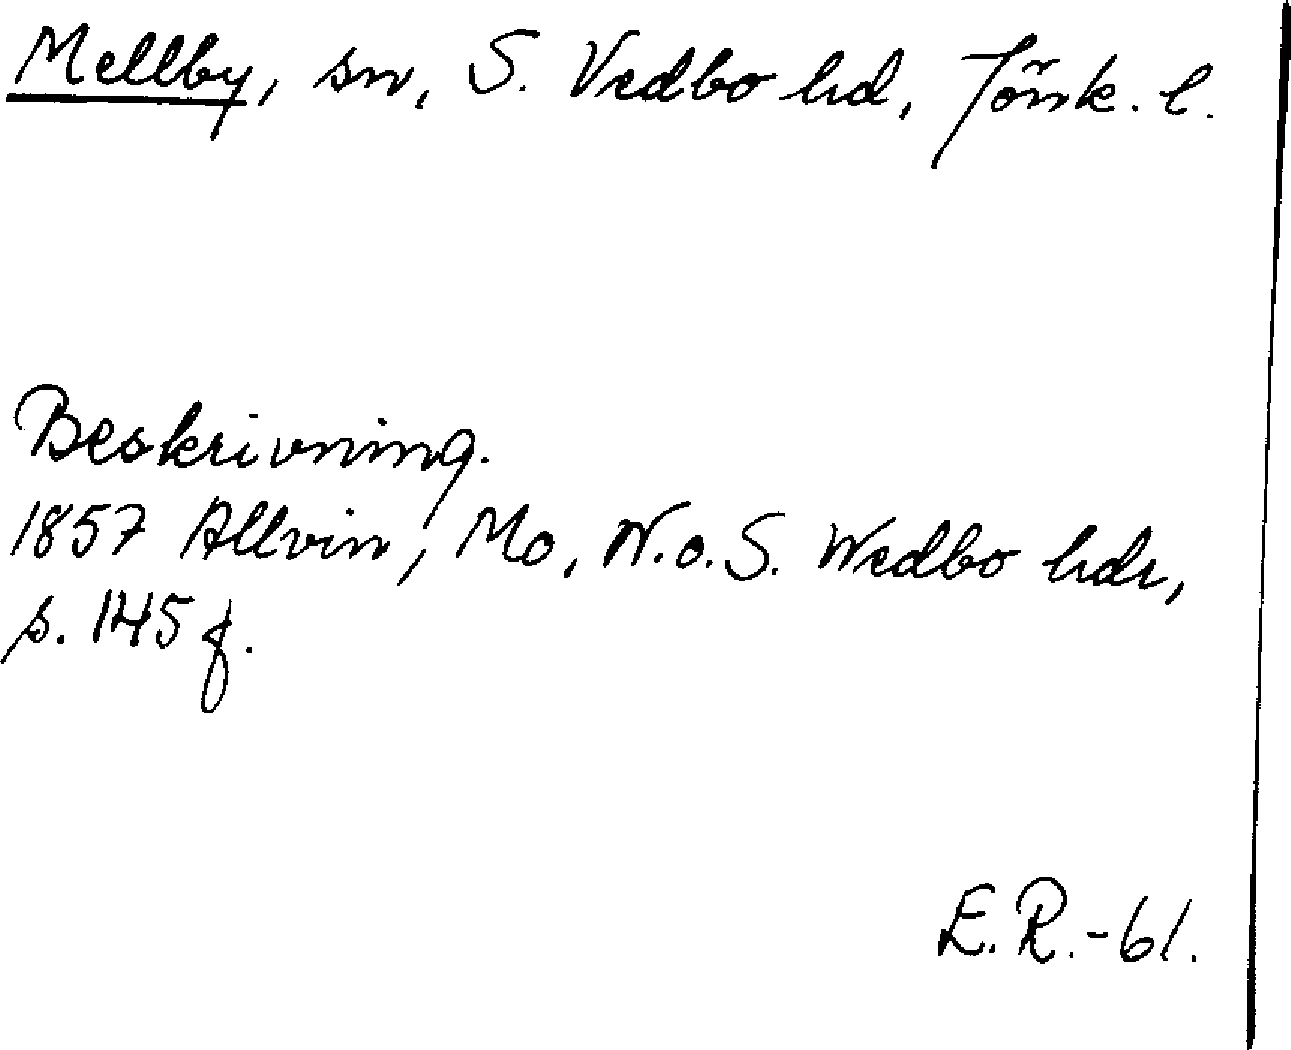 Mellby, sn, S. Vedbo hd, Jönk. l.
Beskrivning.
1857 Allvin, Mo, N. o. S. Wedbo hdr,
s. 145 f.
E. R. - 61.